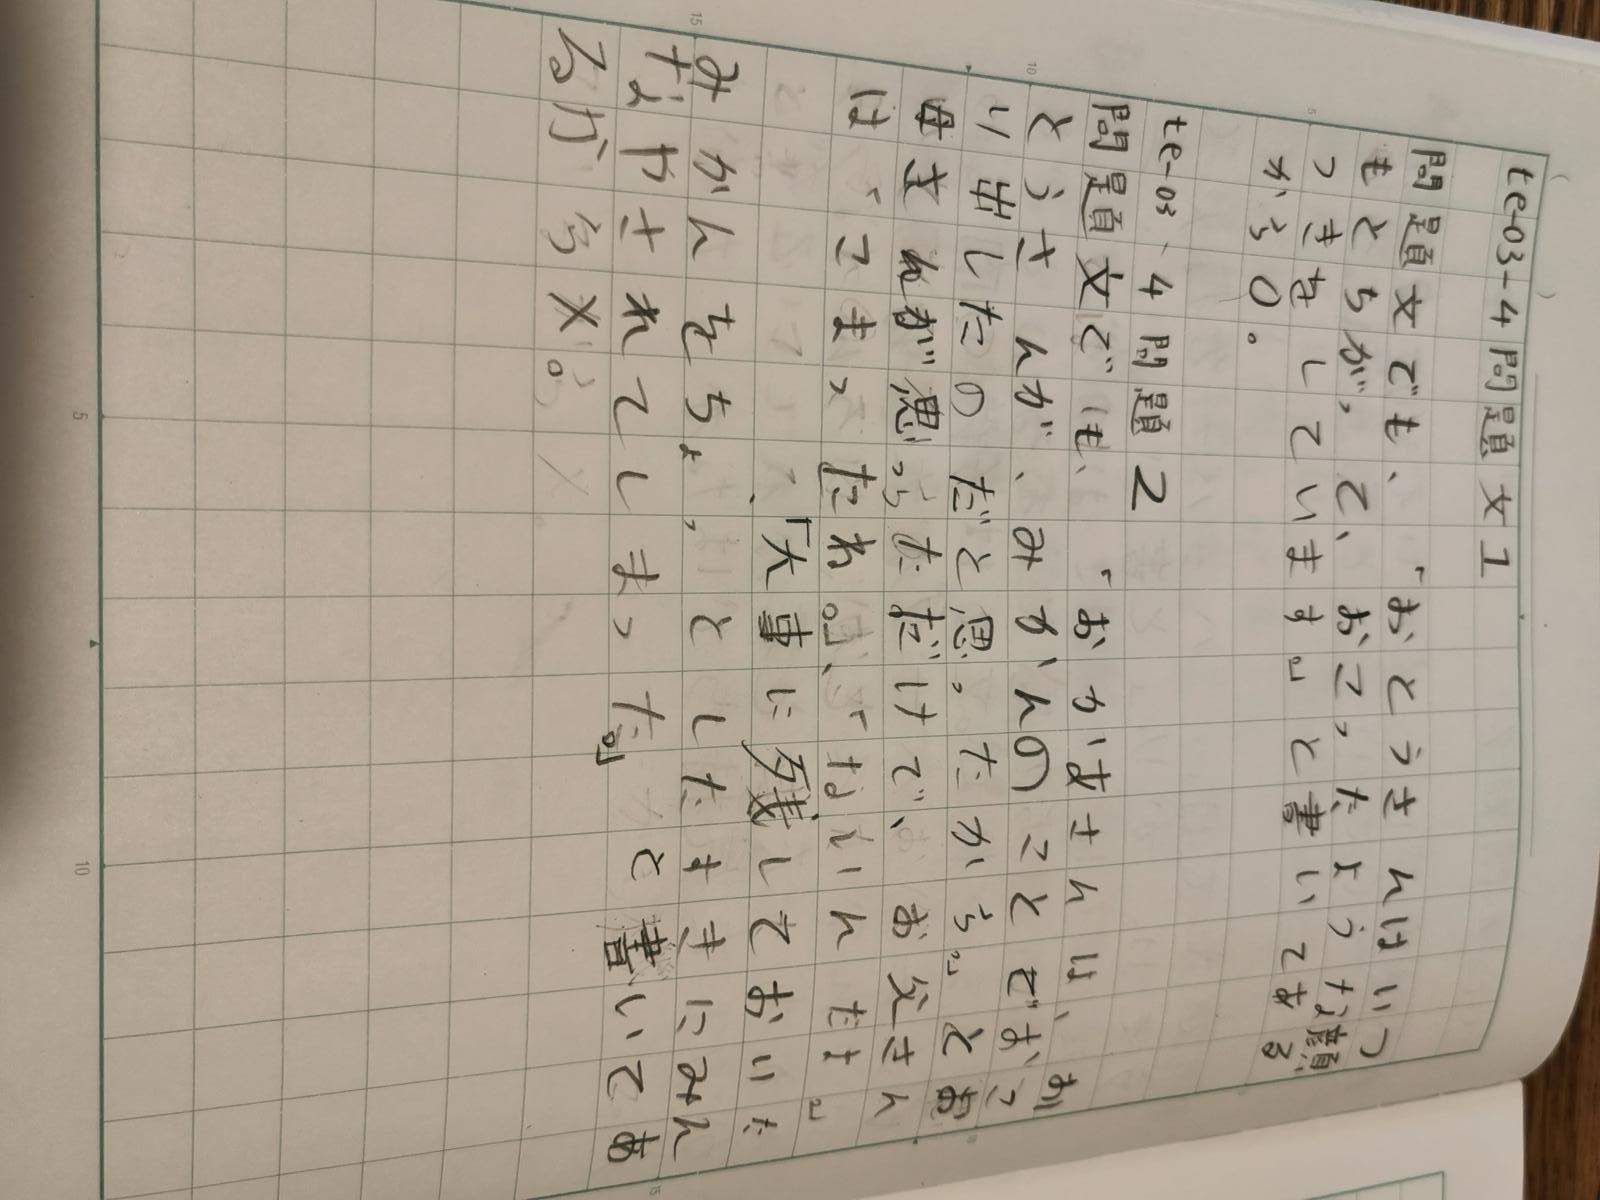 te-03-4問題文1
問題文でも、「おとうさんはいつ
もとちがって、おこったような顔
つきをしています」と書いてある
から〇。
te-03、4問題2
問題文でも、「おかあさんは、お
とうさんが、みかんのことでおこ
り出したのだと思ったから」とお
母さんが思ったただけで、お父さん
は、「こまったわ。」、「ないんだよ」
、「大事に残しておいた
みかんをちょっとしたすきにみん
なやされてしまった。」と書いてあ
るから×。
15
10
5
5
10
15